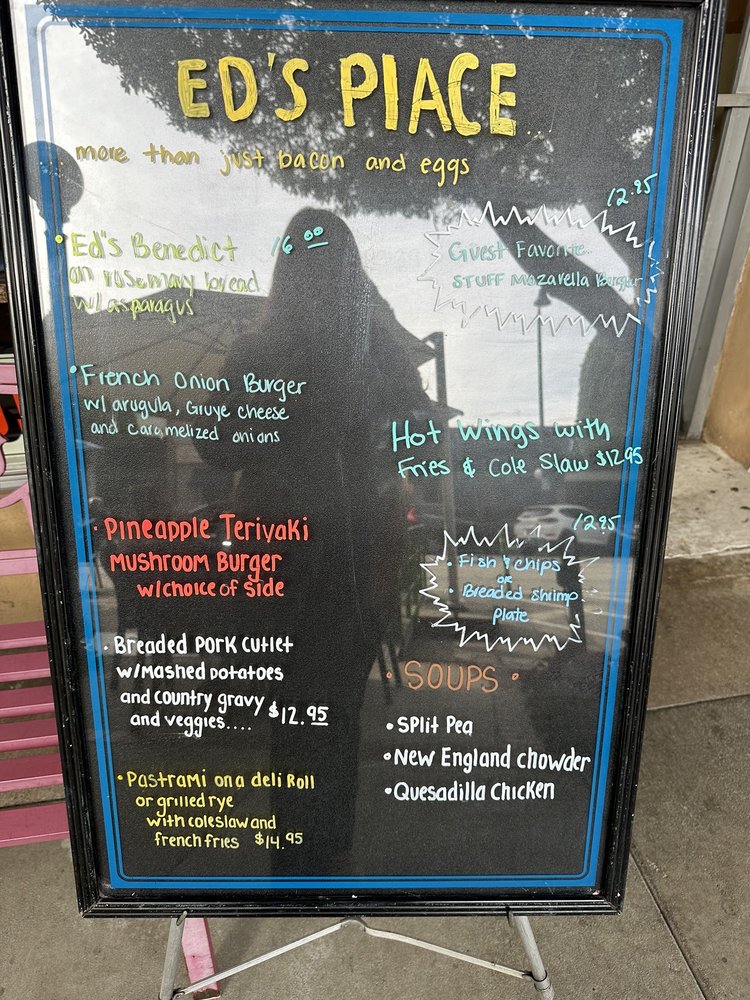 ED'S PlACE...
... more than just bacon and eggs
• Ed's Benedict 16.00
on rosemary bread
w/ asparagus
• French Onion Burger
w/ arugula, Gruye cheese
and caramelized onions
• Pineapple Teriyaki
Mushroom Burger
w/choice of side
• Breaded Pork Cutlet
w/Mashed potatoes
and country gravy $12.95
and veggies....
• Pastrami on a deli Roll
or grilled rye
with coleslaw and
french fries $14.95
12.95
Guest Favorite
STUFF Mozarella Burger
Hot Wings with
Fries & Cole Slaw $12.95
12.95
• Fish & chips
or
• Breaded Shrimp
Plate
• SOUPS •
• Split Pea
• New England chowder
• Quesadilla Chicken